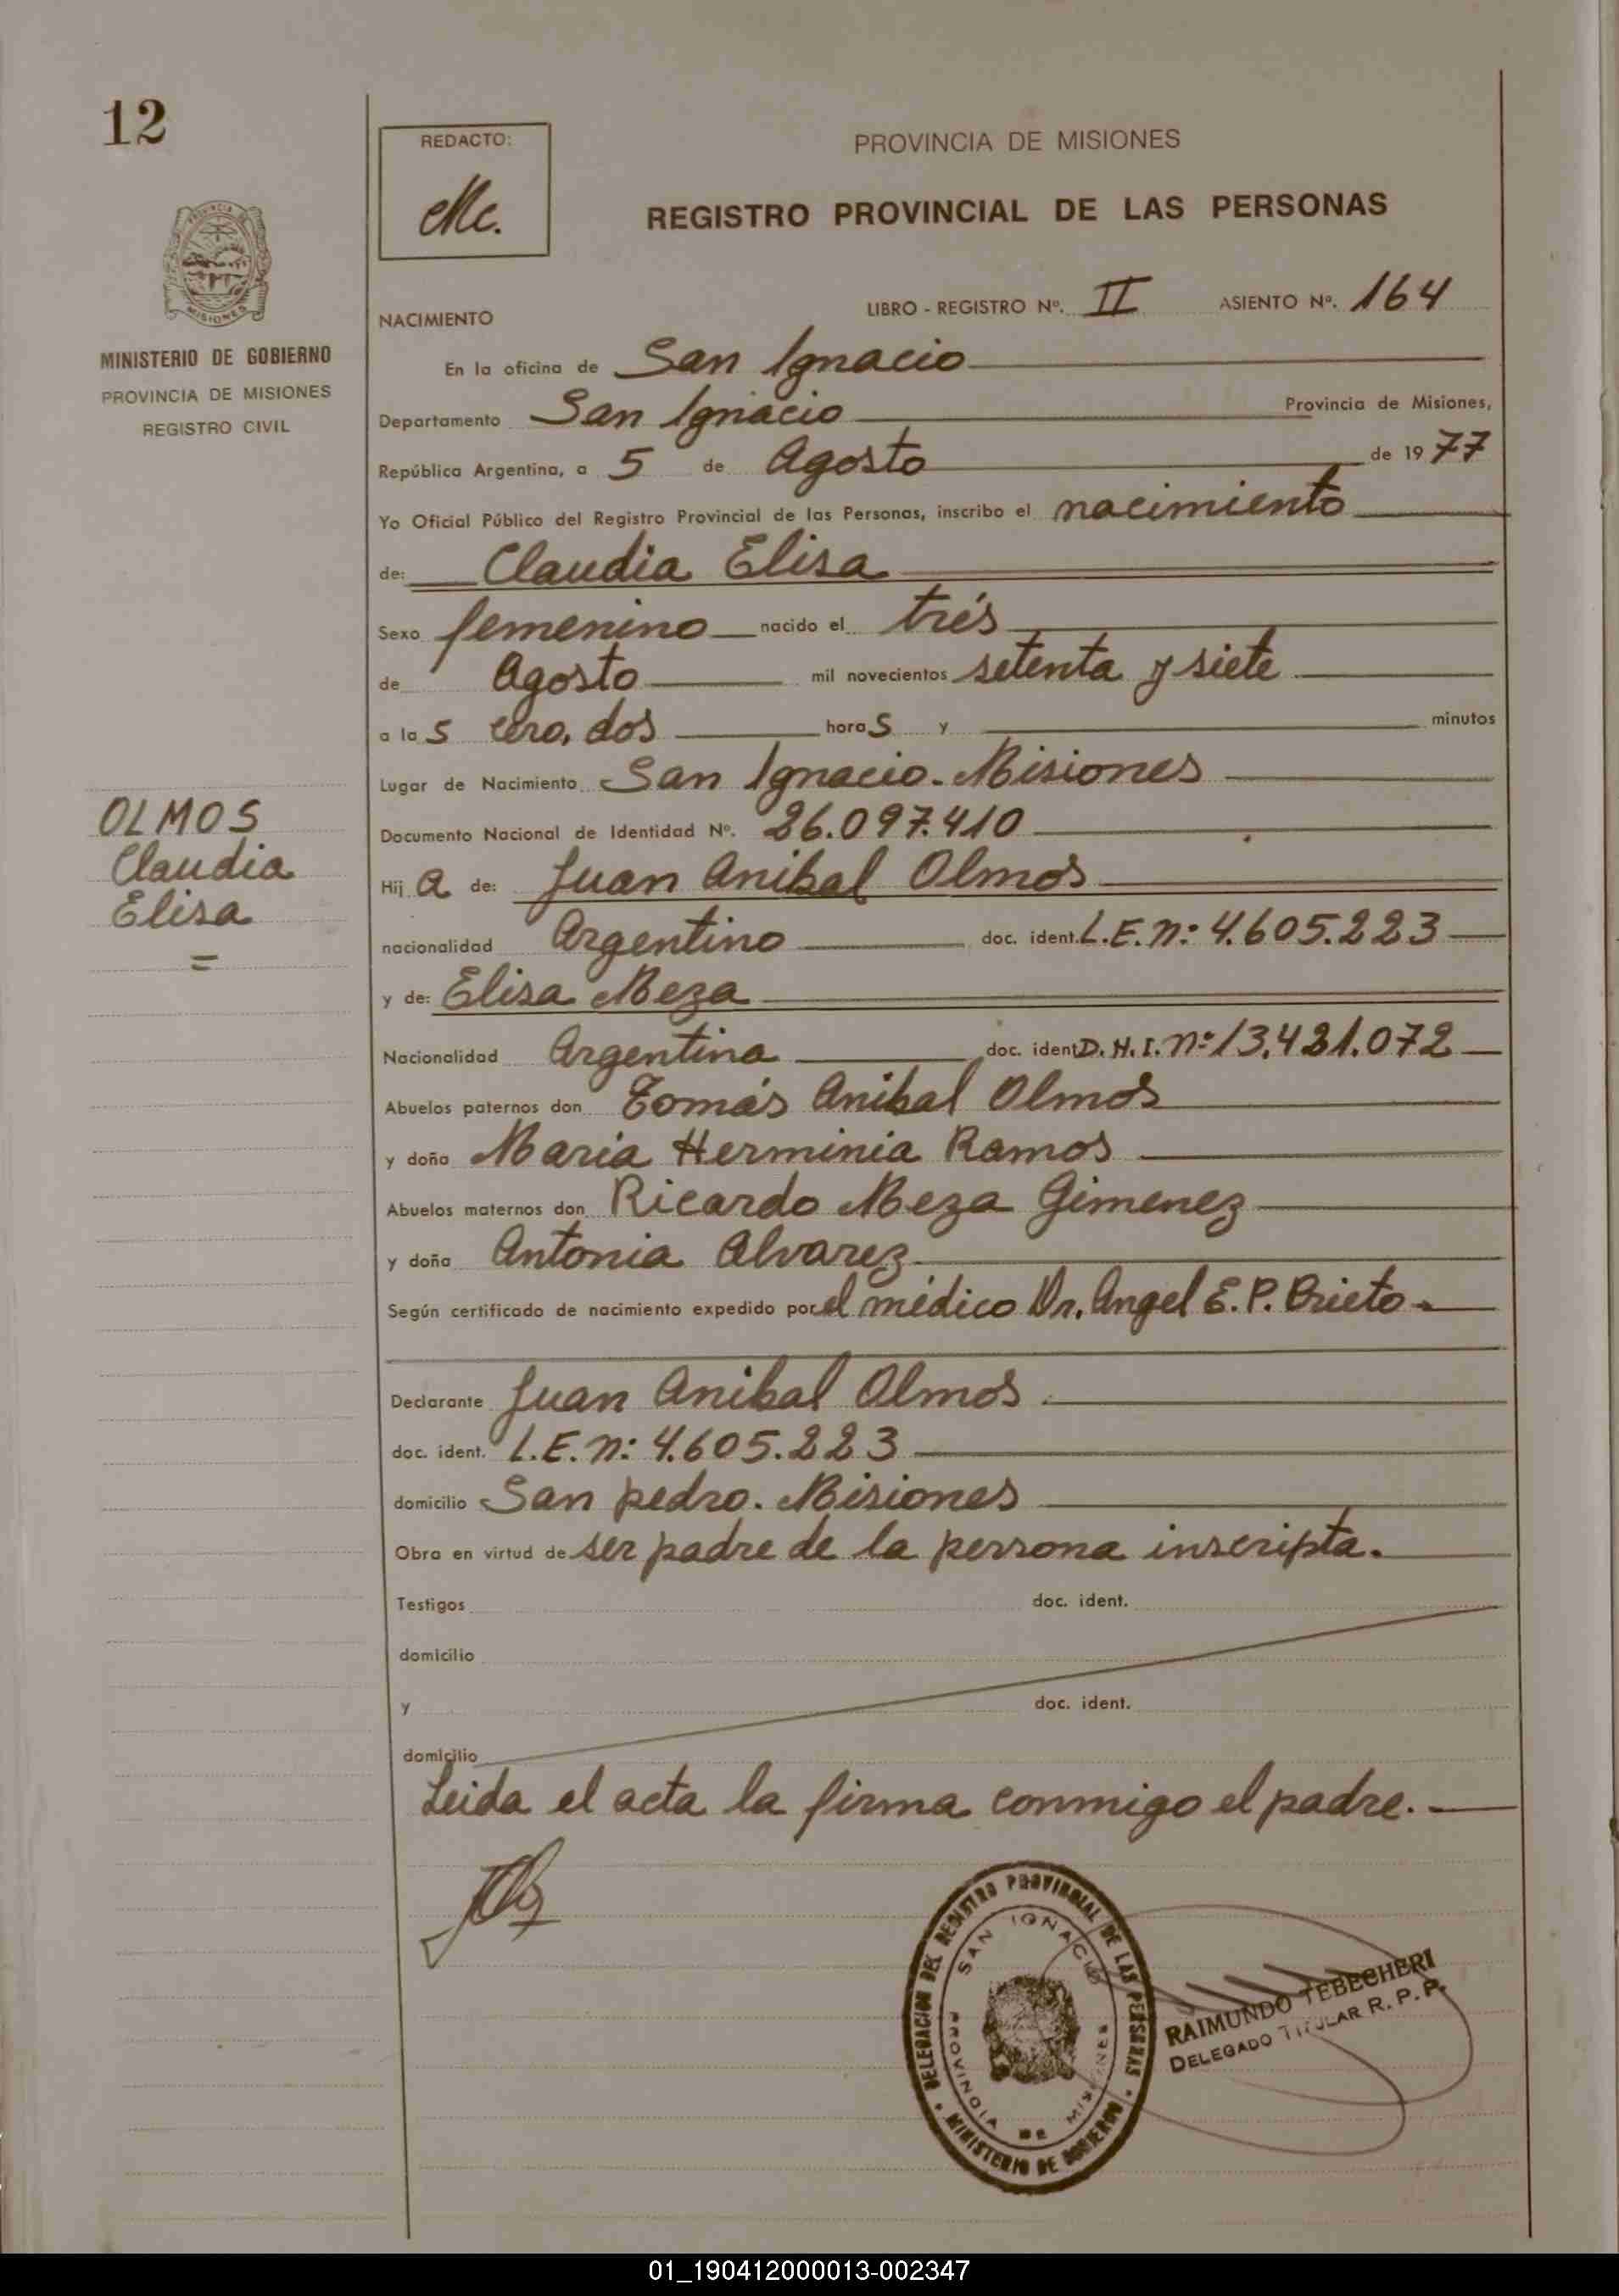 12
REDACTO:
Mc.
PROVINCIA DE MISIONES
REGISTRO PROVINCIAL DE LAS PERSONAS
MINISTERIO DE GOBIERNO
PROVINCIA DE MISIONES
REGISTRO CIVIL
LIBRO - REGISTRO Nº. II ASIENTO Nº. 164
NACIMIENTO
En la oficina de San Ignacio
Departamento San Ignacio Provincia de Misiones,
República Argentina, a 5 de Agosto de 1977
Yo Oficial Público del Registro Provincial de las Personas, inscribo el nacimiento
de: Claudia Elisa
Sexo femenino nacido el trés
de Agosto mil novecientos setenta y siete
a las cero, dos horas y minutos
Lugar de Nacimiento San Ignacio - Misiones
Documento Nacional de Identidad Nº. 26.097.410
OLMOS
Claudia
Elisa
=
Hija de: Juan Anibal Olmos
nacionalidad Argentino doc. ident. L.E. n: 4.605.223
y de: Elisa Meza
Nacionalidad Argentina doc. ident D.N.I. nº 13.421.072
Abuelos paternos don Tomás Anibal Olmos
y doña Maria Herminia Ramos
Abuelos maternos don Ricardo Meza Gimenez
y doña Antonia Alvarez
Según certificado de nacimiento expedido por el médico Dr. Angel E. P. Prieto.
Declarante Juan Anibal Olmos.
doc. ident. L.E. n: 4.605.223
domicilio San pedro. Misiones
Obra en virtud de ser padre de la persona inscripta.
Testigos doc. ident.
domicilio
y doc. ident.
domicilio
Leida el acta la firma conmigo el padre.
DELEGACION DEL REGISTRO PROVINCIAL DE LAS PERSONAS
SAN IGNACIO
PROVINCIA DE MISIONES
MINISTERIO DE GOBIERNO
RAIMUNDO TEBECHERI
DELEGADO TITULAR R. P. P.
01_190412000013-002347